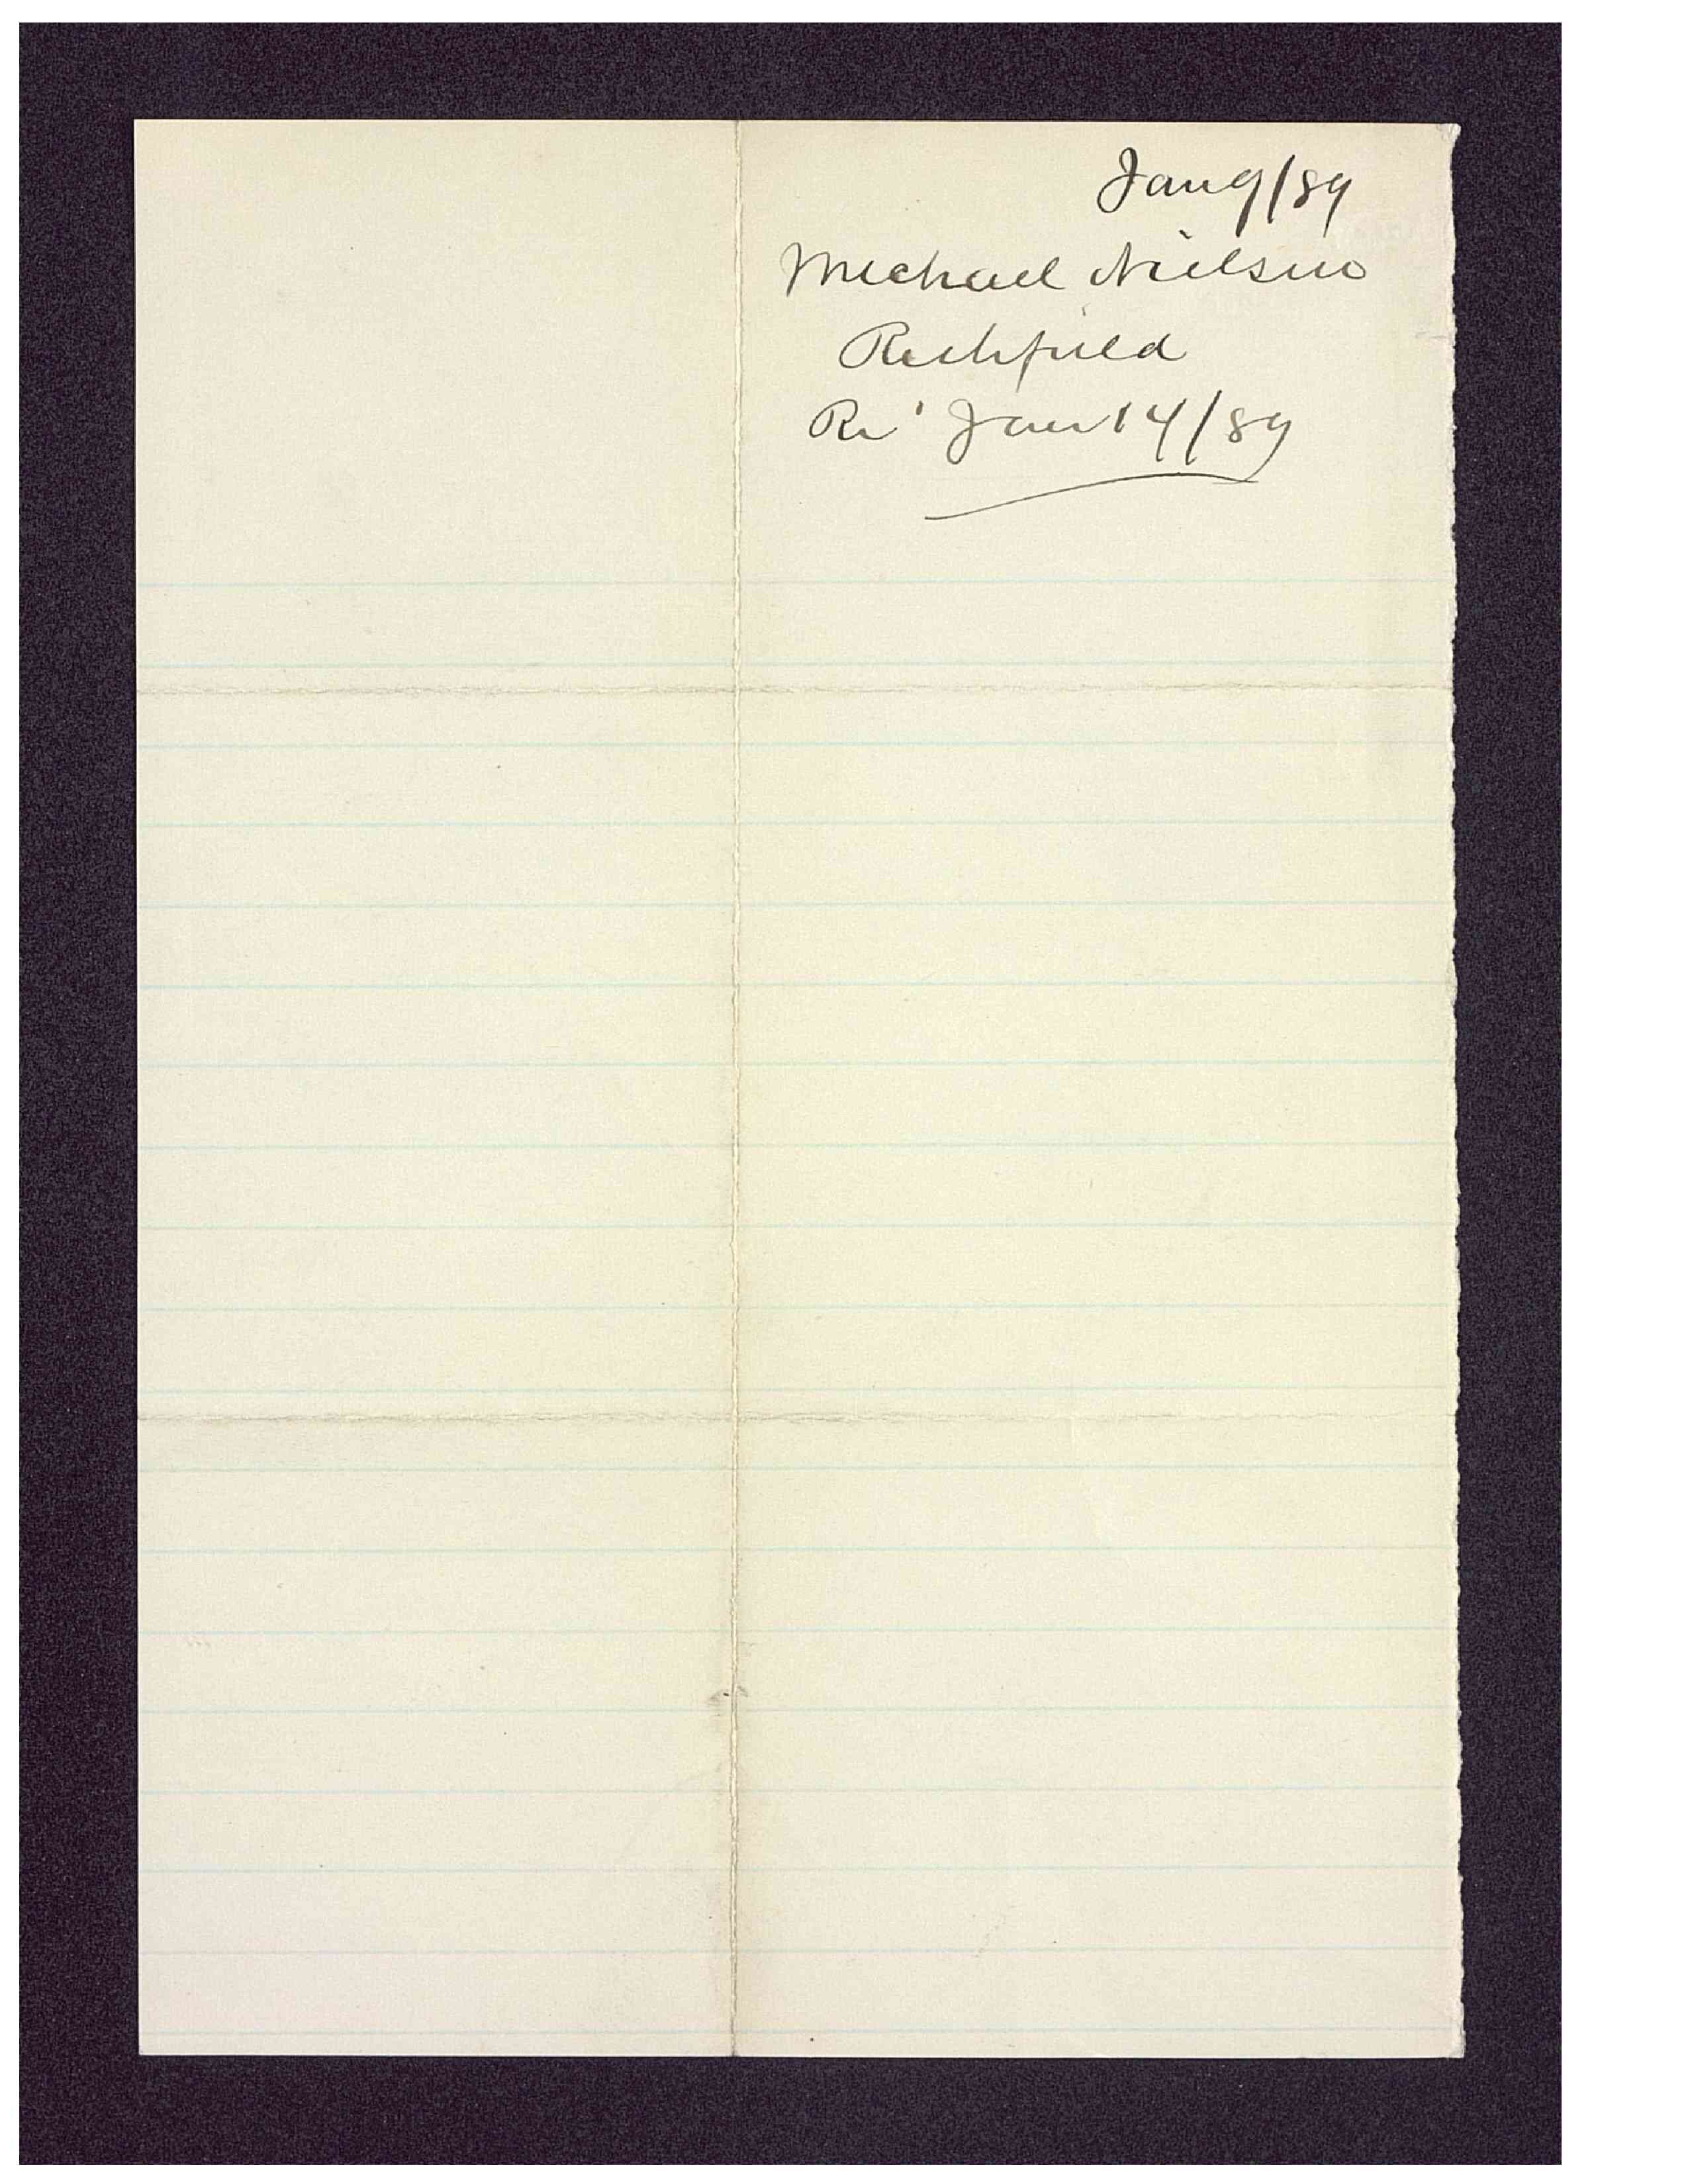 Jan 9/89
Michael Nielsen
Richfield
Re' Jan 14/89